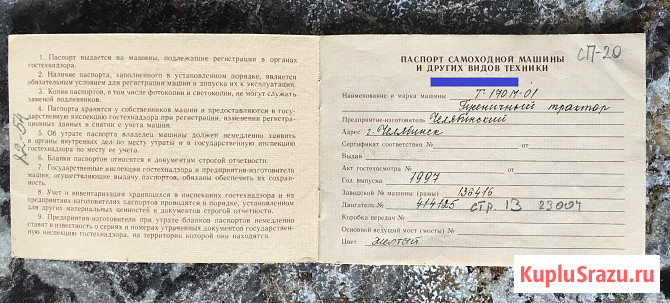 1. Паспорт выдается на машины, подлежащие регистрации в органах
гостехнадзора.
2. Наличие паспорта, заполненного в установленном порядке, является
обязательным условием для регистрации машин и допуска их к эксплуатации.
3. Копия паспортов, в том числе фотокопии и светокопии, не могут служить
заменой подлинников.
4. Паспорта хранятся у собственников машин и предоставляются в госу-
дарственную инспекцию гостехнадзора при регистрации, изменения регистра-
ционных данных и снятия с учета машин.
5. Об утрате паспорта владелец машины должен немедленно заявить
в органы внутренних дел по месту утраты и в государственную инспекцию
гостехнадзора по месту ее учета.
6. Бланки паспортов относятся к документам строгой отчетности.
7. Государственные инспекции гостехнадзора и предприятия-изготовители
машин, осуществляющие выдачу паспортов, обязаны обеспечить их сохран-
ность.
8. Учет и инвентаризация хранящихся в инспекциях гостехнадзора и на
предприятиях-изготовителях паспортов проводятся в порядке, установленном
для других материальных ценностей и документов строгой отчетности.
9. Предприятия-изготовители при утрате бланков паспортов немедленно
ставят в известность о сериях и номерах утраченных документов государствен-
ную инспекцию гостехнадзора, на территории которой они находятся.
СП-20
ПАСПОРТ САМОХОДНОЙ МАШИНЫ
И ДРУГИХ ВИДОВ ТЕХНИКИ
Наименование и марка машины Т-170М-01
Гусеничный трактор
Предприятие-изготовитель Челябинский
Адрес г. Челябинск
Сертификат соответствия № от
Выдан
Акт гостехосмотра № от
Год выпуска 1997
Заводской № машины (рамы) 136416
Двигатель № 414125 стр 13 23004
Коробка передач №
Основной ведущий мост (мосты) №
Цвет желтый
KupluSrazu.ru